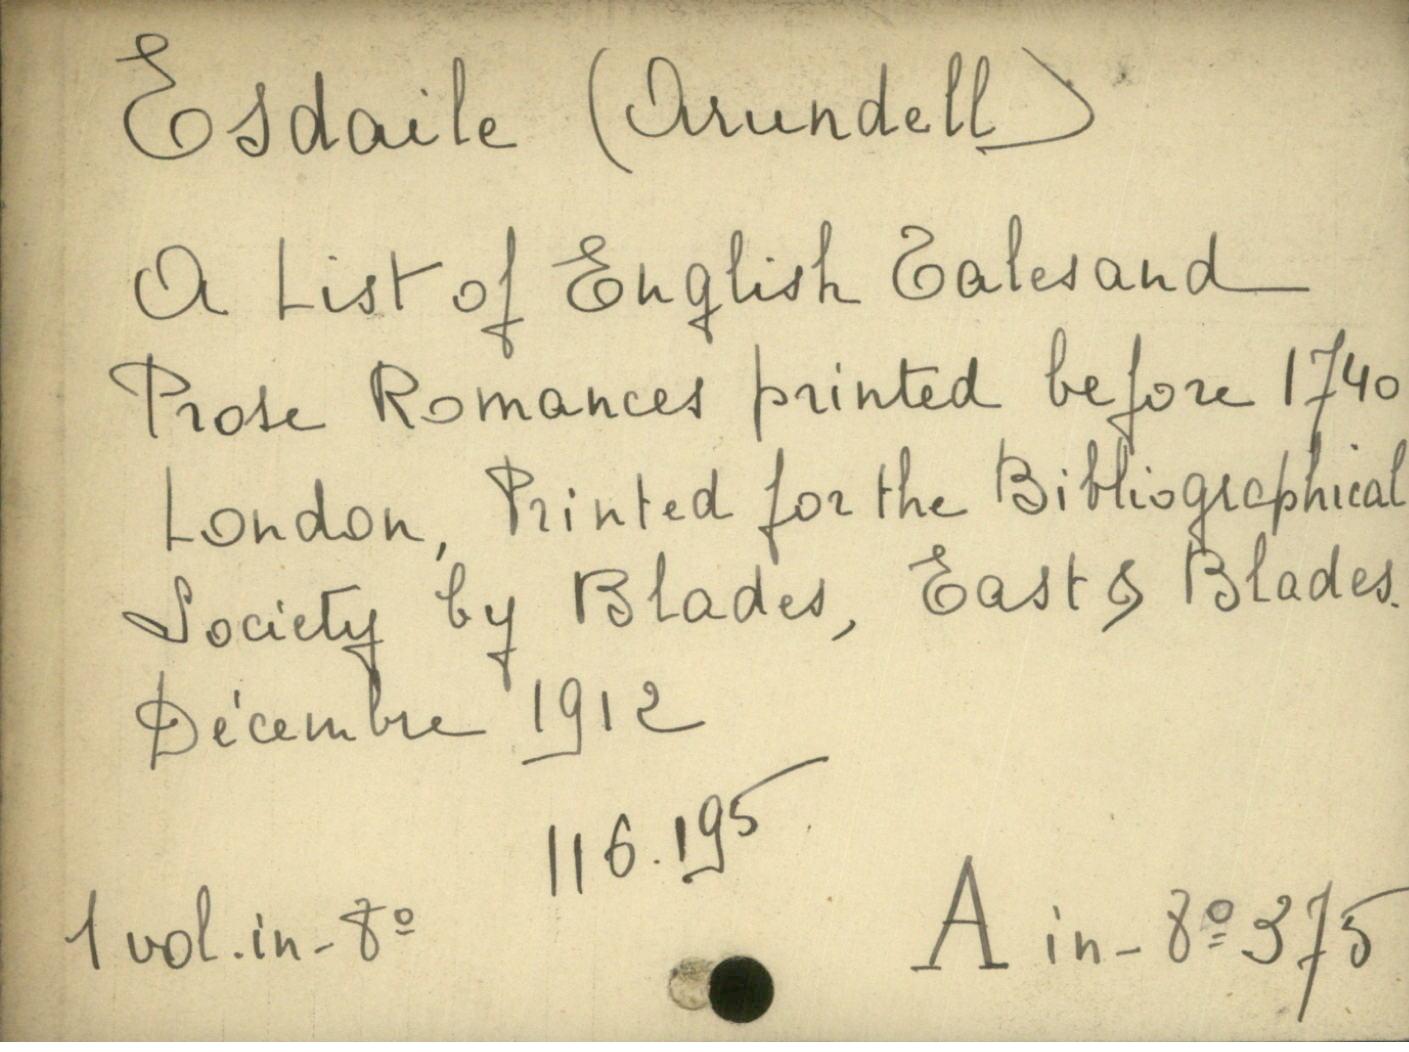 Esdaile (Arundell)
A List of English Tales and
Prose Romances printed before 1740
London, Printed for the Bibliographical
Society by Blades, East & Blades.
Décembre 1912
116.195
1 vol. in-8º
A in-8º 375